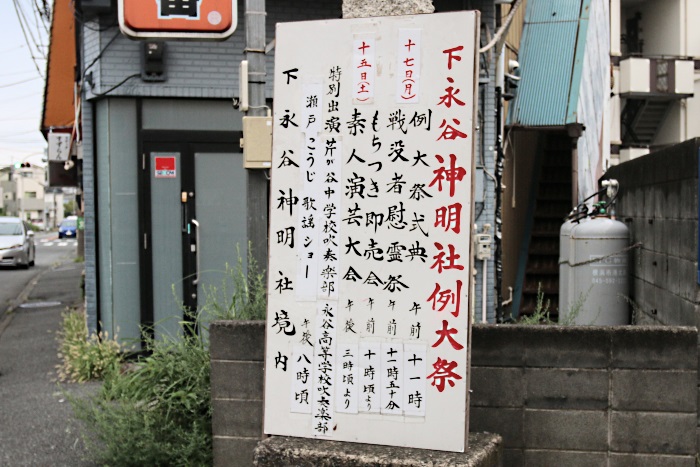 下永谷神明社例大祭
十七日(月)
例大祭式典 午前 十一時
戦没者慰霊祭 午前 十一時五十分
もちつき即売会 午前 十時頃より
十五日(土)
素人演芸大会 午後 三時頃より
特別出演 芹が谷中学校吹奏楽部 永谷高等学校吹奏楽部
瀬戸こうじ歌謡ショー 午後 八時頃
下永谷神明社境内